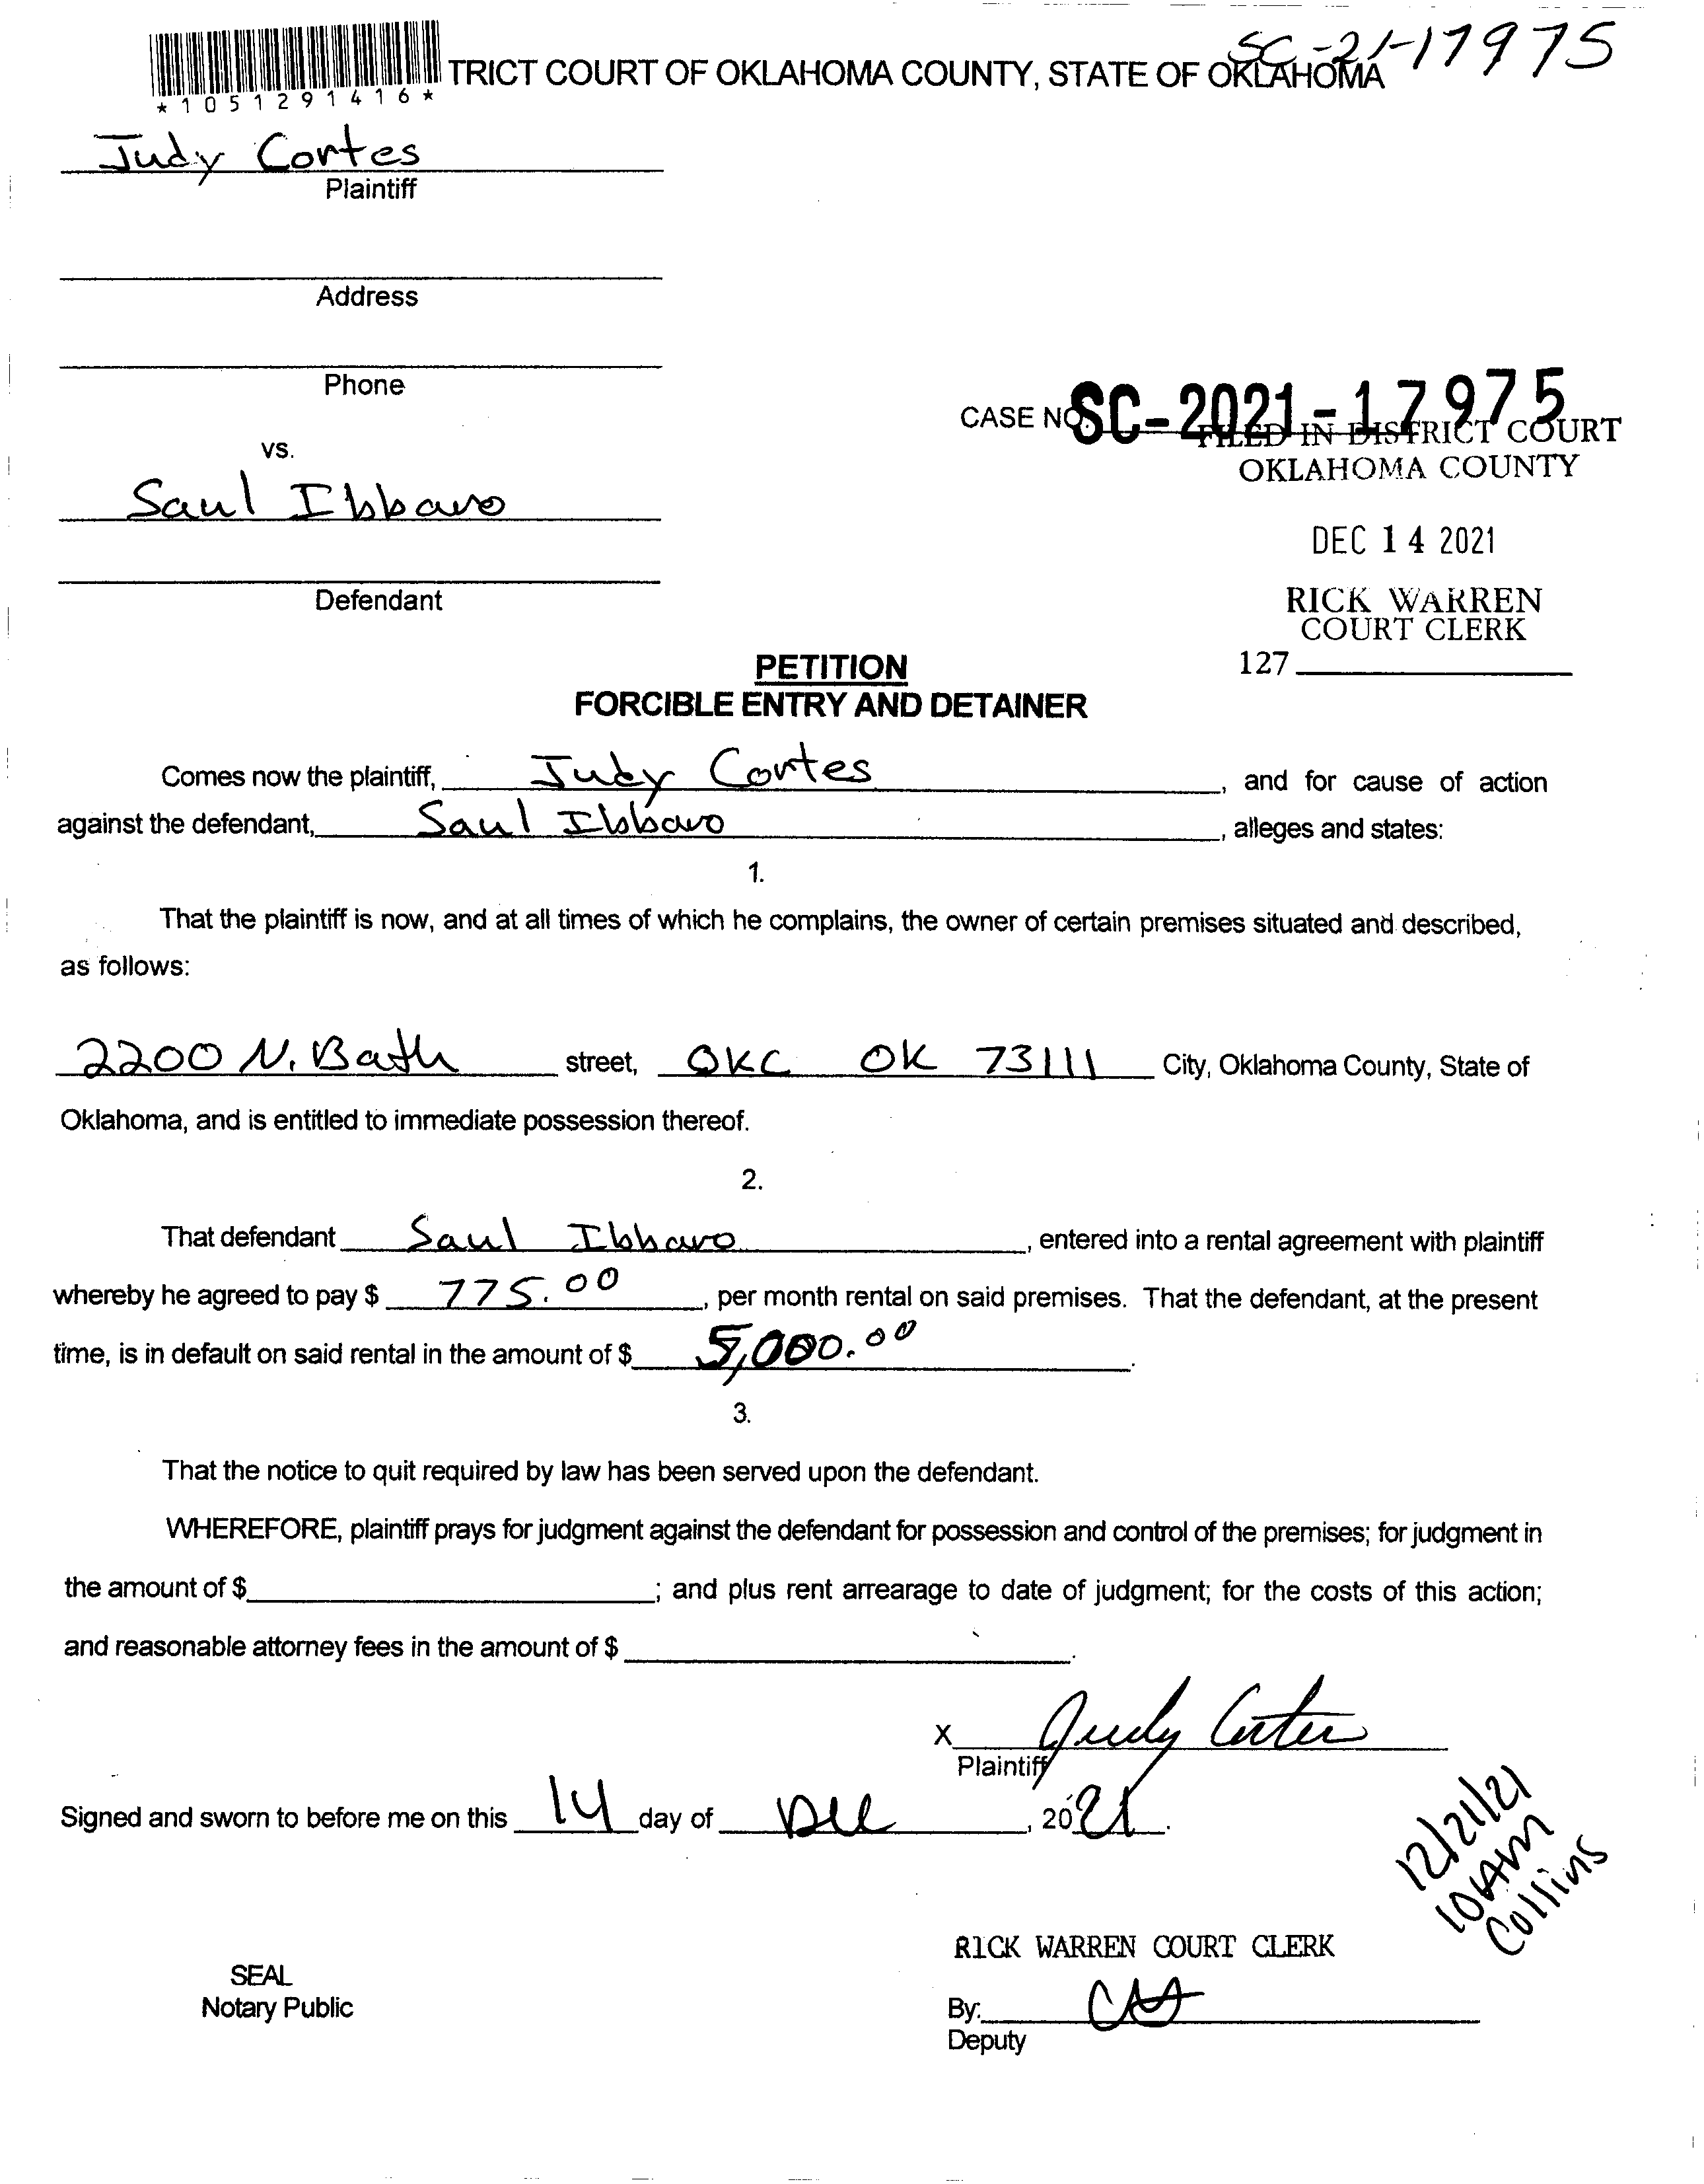 SC-21-17975
TRICT COURT OF OKLAHOMA COUNTY, STATE OF OKLAHOMA
*1051291416*
Judy Cortes
Plaintiff
Address
Phone
CASE NO. SC-2021-17975
FILED IN DISTRICT COURT
OKLAHOMA COUNTY
vs.
Saul Ibbaro
DEC 14 2021
Defendant
RICK WARREN
COURT CLERK
127
PETITION
FORCIBLE ENTRY AND DETAINER
Comes now the plaintiff, Judy Cortes, and for cause of action
against the defendant, Saul Ibbaro, alleges and states:
1.
That the plaintiff is now, and at all times of which he complains, the owner of certain premises situated and described,
as follows:
2200 N. Bath street, OKC OK 73111 City, Oklahoma County, State of
Oklahoma, and is entitled to immediate possession thereof.
2.
That defendant Saul Ibbaro, entered into a rental agreement with plaintiff
whereby he agreed to pay $ 775.00, per month rental on said premises. That the defendant, at the present
time, is in default on said rental in the amount of $ 5,000.00.
3.
That the notice to quit required by law has been served upon the defendant.
WHEREFORE, plaintiff prays for judgment against the defendant for possession and control of the premises; for judgment in
the amount of $ ; and plus rent arrearage to date of judgment; for the costs of this action;
and reasonable attorney fees in the amount of $ .
X Judy Cortes
Plaintiff
Signed and sworn to before me on this 14 day of Dec, 2021.
12/21/21
10AM
Collins
RICK WARREN COURT CLERK
SEAL
Notary Public
By:
Deputy